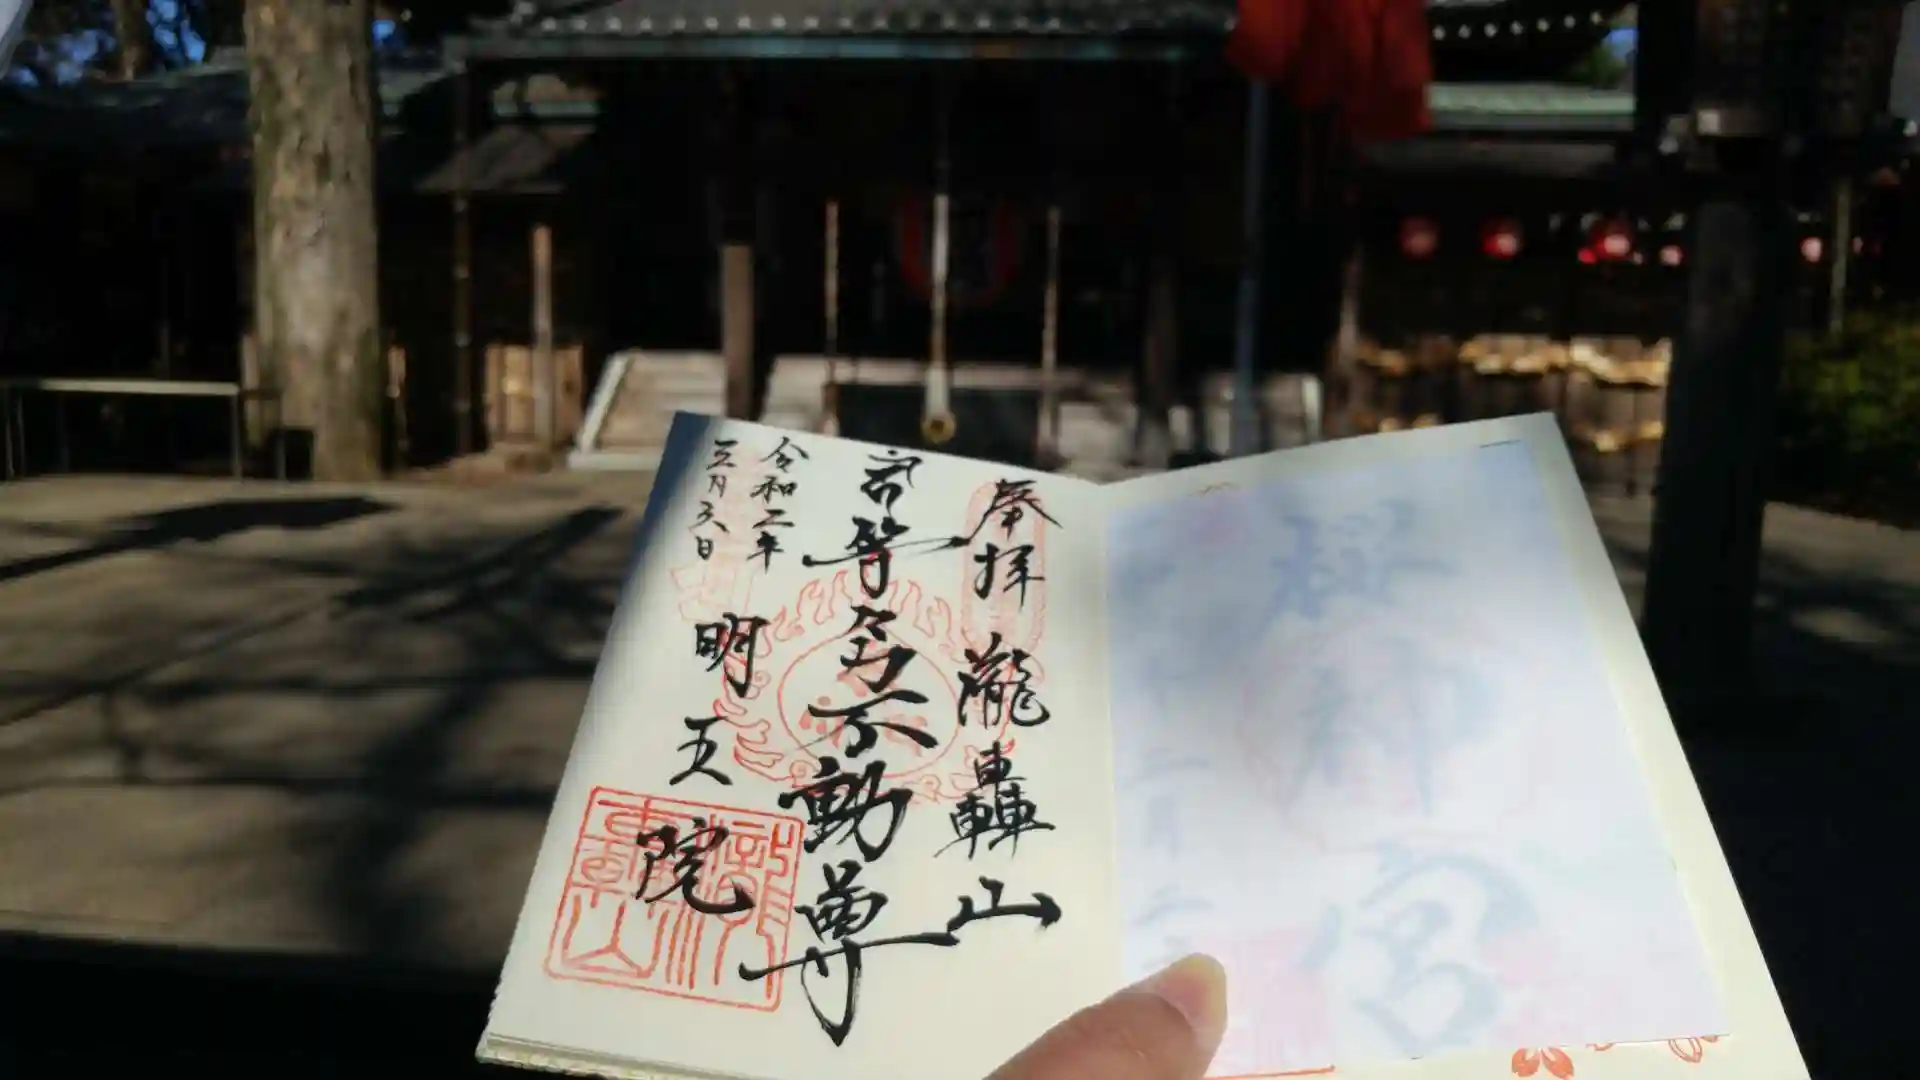 櫻神宮
奉拝 瀧轟山
等々力不動尊
令和二年
三月六日
明王院
瀧轟山